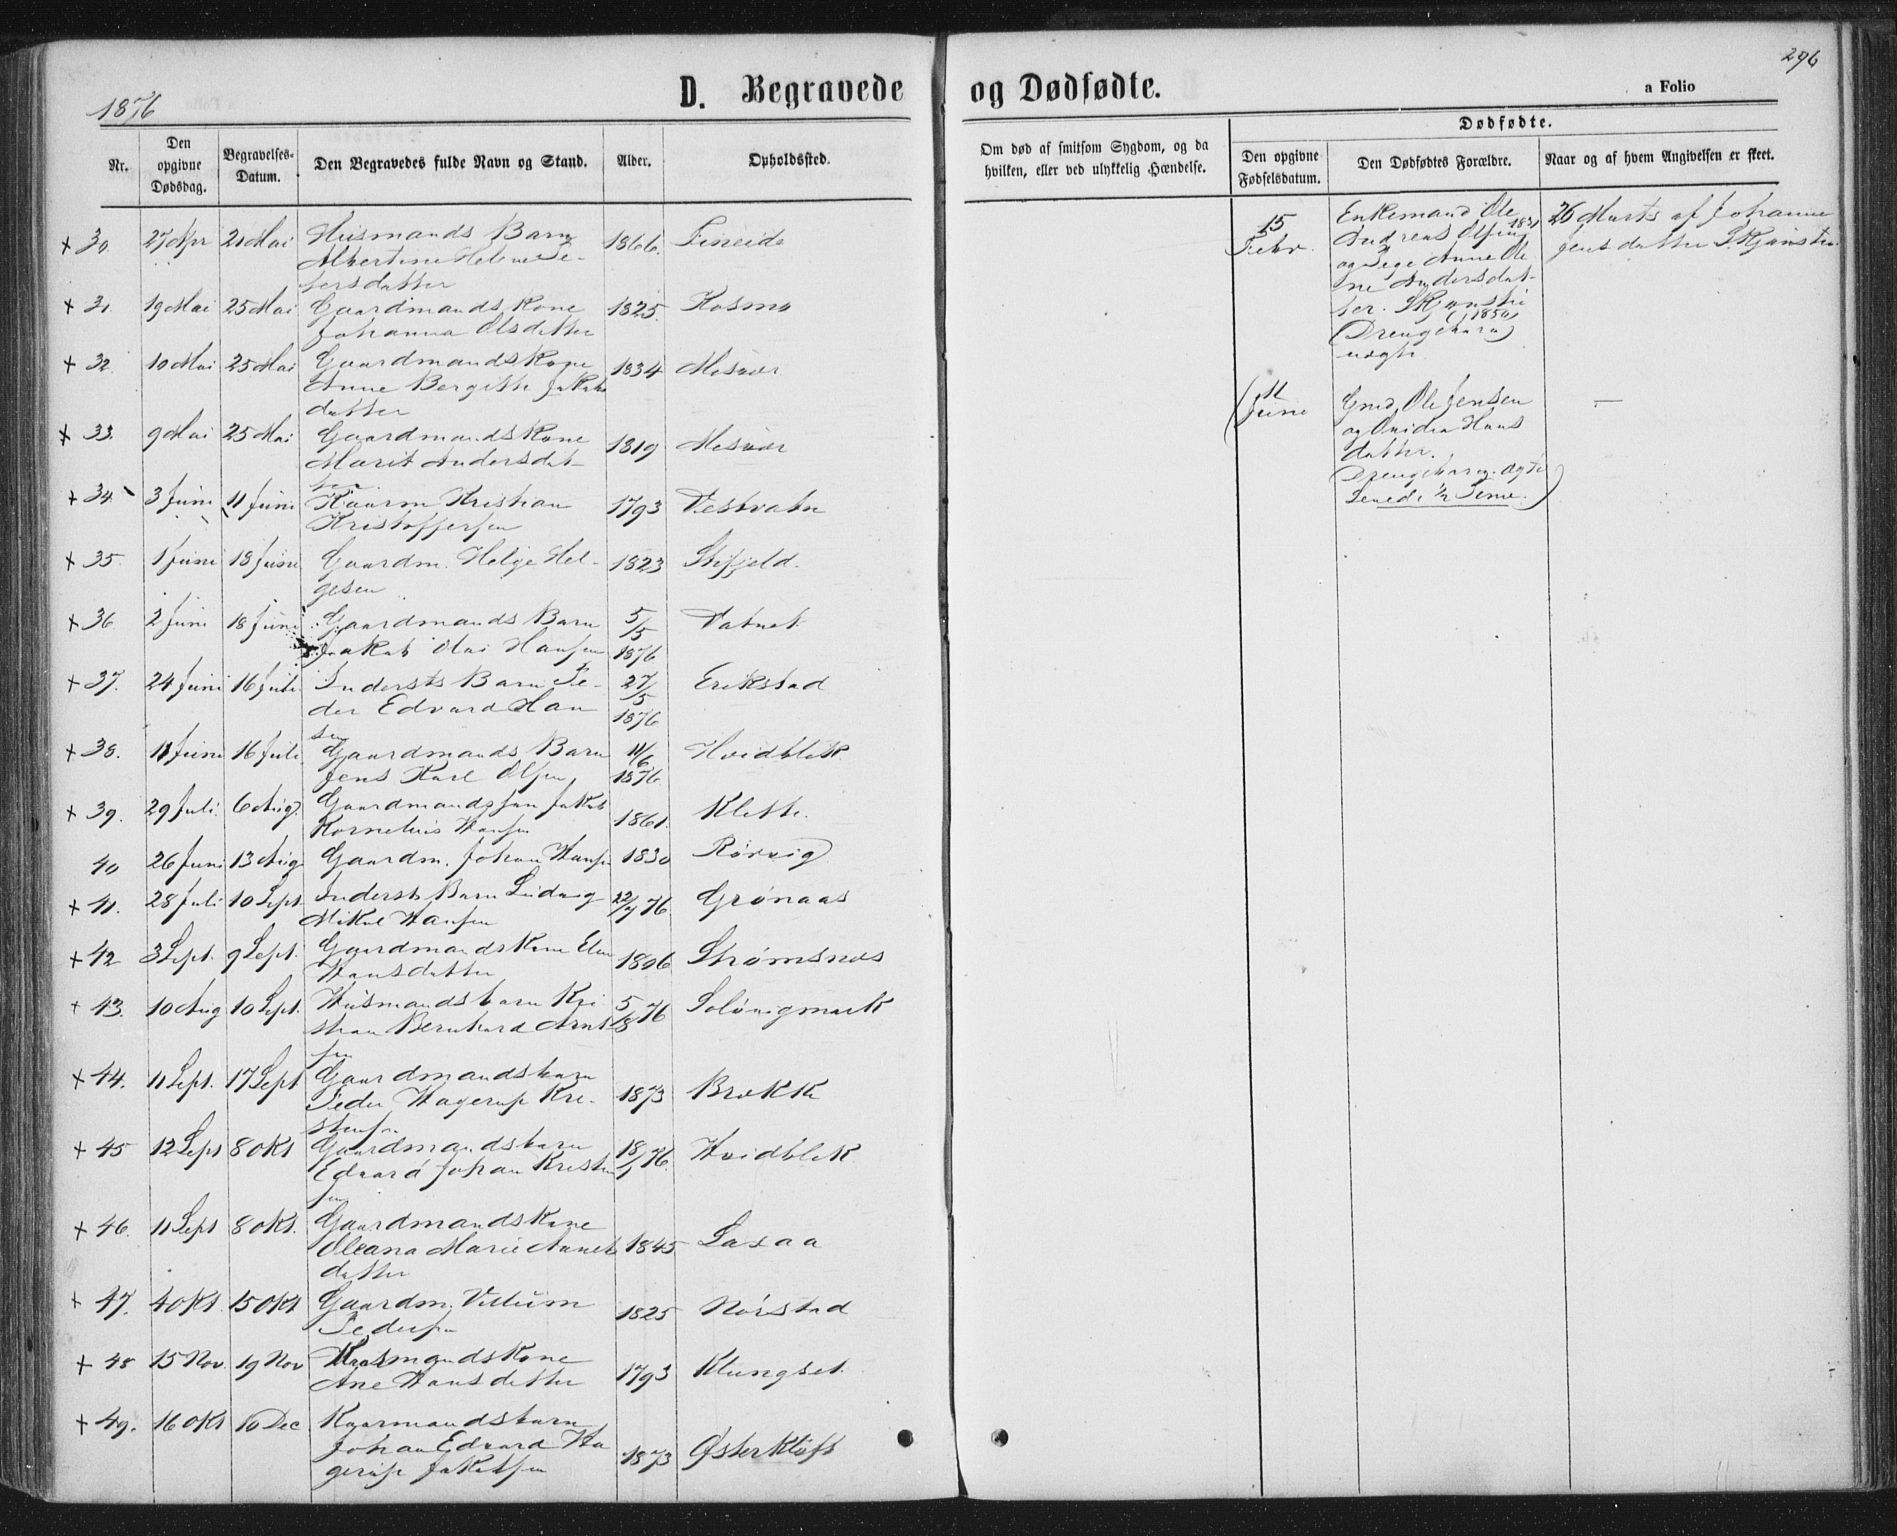 296
1876
D. Begravede og Dødfødte.
a Folio
Nr.
Den opgivne Dødsdag.
Begravelses-Datum.
Den Begravedes fulde Navn og Stand.
Alder.
Opholdssted.
Om død af smitsom Sygdom, og da hvilken, eller ved ulykkelig Hændelse.
Dødfødte.
Den opgivne Fødselsdatum.
Den Dødfødtes Forældre.
Naar og af hvem Angivelsen er skeet.
+ 30. 27 Apr 21 Mai Husmands Barn 1866. Fineide
Albertine Helene Pe-
dersdatter
+ 31 19 Mai 25 Mai Gaardmands Kone 1825. Kosmo
Johanna Olsdatter
+ 32 10 Mai 25 Mai Gaardmands Kone 1834 Mosvor
Anne Bergitte Jakobs
datter
+ 33. 9 Mai 25 Mai Gaardmands Kone 1819 Mosvor
Marit Andersdat-
ter
+ 34. 3 Juni 11 Juni Kaarm Kristian 1793 Vestvatn
Kristoffersen
+ 35. 1 Juni 18 Juni Gaardm. Helge Hel- 1823 Stifjeld.
gesen
+ 36 2 Juni 18 Juni Gaardmands Barn 5/5 1876 Vatnet
Jakob Mai Hansen
+ 37. 24 Juni 16 Juli Indersts Barn Pe- 27/5 1876 Erikstad
der Edvard Han
sen
+ 38. 11 Juni 16 Juli Gaardmands Barn 11/6 1876 Hvidblik
Jens Karl Olsen
+ 39. 29 Juli 6 Aug. Gaardmandssøn Jakob 1861. Klette
Kornelius Hansen
40 26 Juni 13 Aug Gaardm. Johan Hansen 1830 Rørvig
+ 41. 28 Juli 10 Sept. Indersts Barn Ludvig 22/7 76 Grønaas
Mikal Hansen
+ 42 3 Sept. 9 Sept. Gaardmands Kone Elen 1806 Strømsnes
Hansdatter
+ 43. 10 Aug 10 Sept. Husmandsbarn Kri 5/8 76 Soløvigmark
stian Bernhard Arnt
sen
+ 44. 11 Sept. 17 Sept Gaardmandsbarn 1873 Brække
Peder Hagerup Kri-
stensen
+ 45 12 Sept 8 Okt Gaardmandsbarn 18/1 76. Hvidblik
Edvard Johan Kristen
sen
+ 46. 11 Sept 8 Okt. Gaardmands Kone 1845 Laxaa
Oleana Marie Arnets
datter
+ 47. 4 Okt. 15 Okt Gaardm. Villum 1825 Nørstad
Pedersen
+ 48 15 Nov. 19 Nov Husmands Kone 1793 Klungset
Ane Hansdatter
+ 49. 16 Okt 10 Dec Kaarmandsbarn 1873 Østerkløft
Johan Edvard Ha
gerup Jakobsen
15 Febr. Enkemand Ole
Andreas Olsen 1831
og Pige Anne Ole
ne Andersdat-
ter. Skjønsti
(1850)
(Drengebarn)
uægte
26 Marts af Johanna
Jensdatter Skjønsti
(11 Juni Gmd. Ole Jensen —
og Ovidia Hans
datter.
Drengebarn. ægte
Levede ½ Time.)